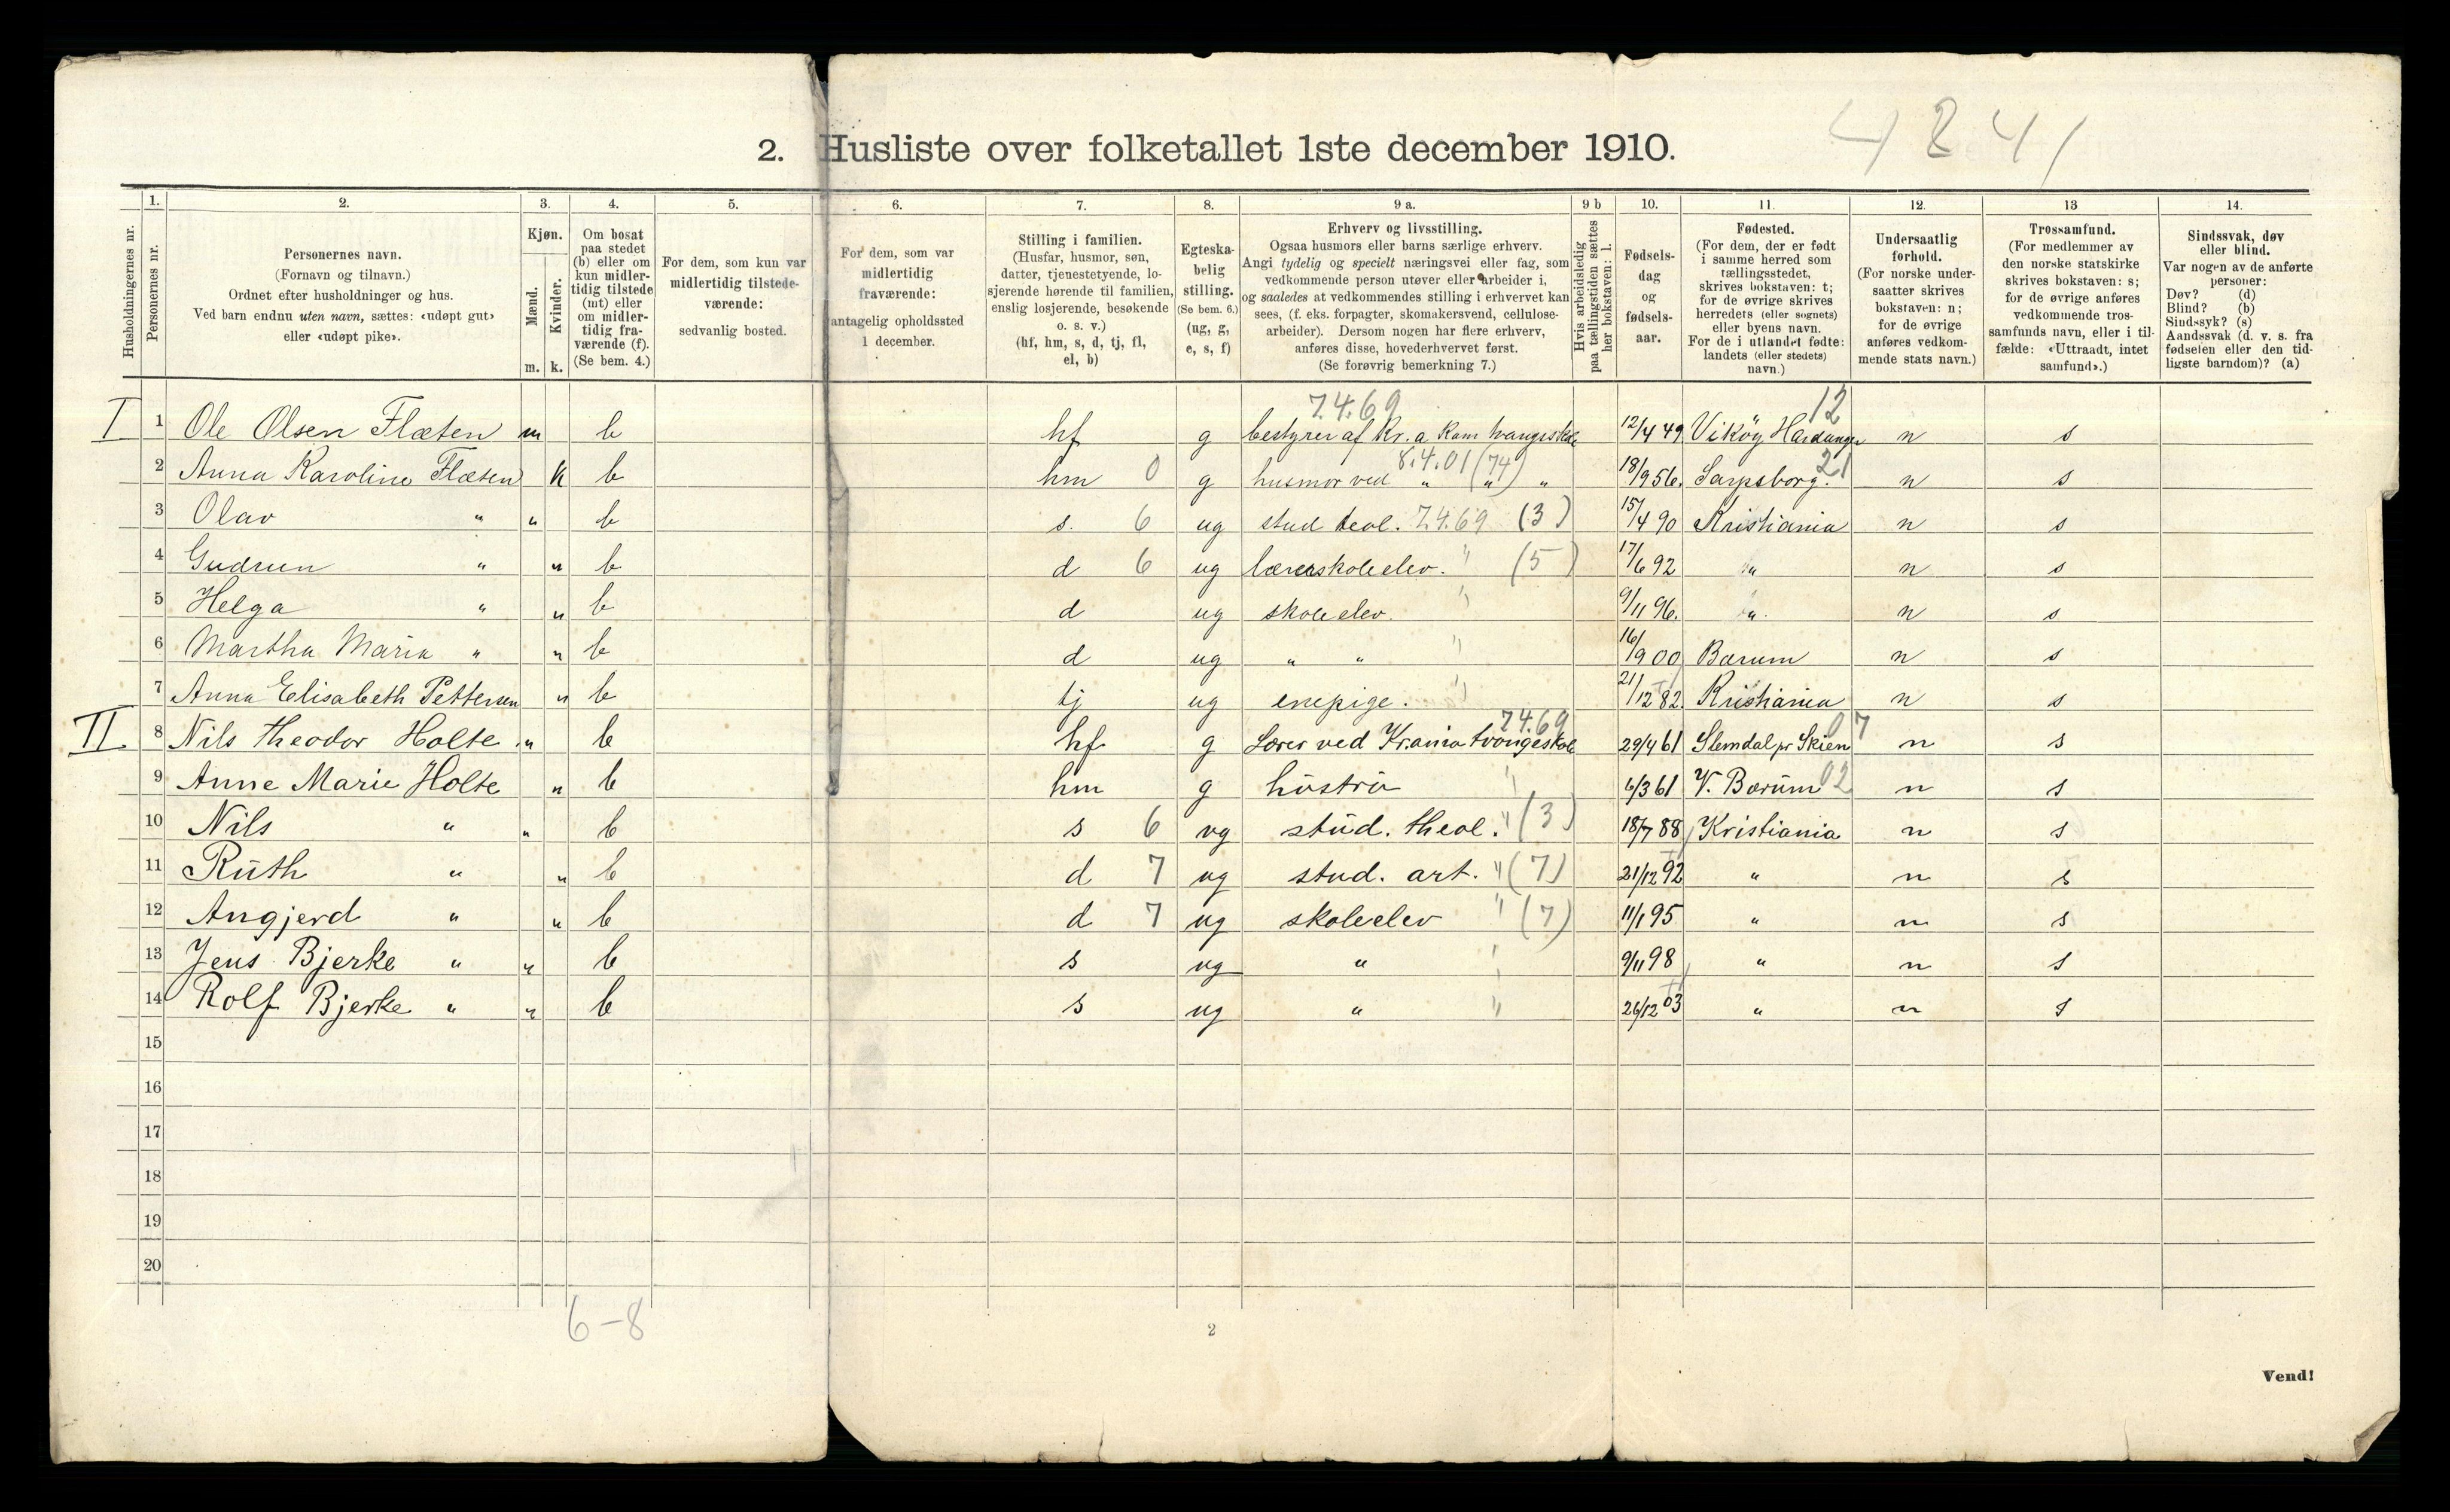 4841
2. Husliste over folketallet 1ste december 1910.
Husholdningernes nr.
1. Personernes nr.
2. Personernes navn.
(Fornavn og tilnavn.)
Ordnet efter husholdninger og hus.
Ved barn endnu uten navn, sættes: «udøpt gut»
eller «udøpt pike».
3. Kjøn.
Mænd. m.
Kvinder. k.
4. Om bosat
paa stedet
(b) eller om
kun midler-
tidig tilstede
(mt) eller
om midler-
tidig fra-
værende (f).
(Se bem. 4.)
5. For dem, som kun var
midlertidig tilstede-
værende:
sedvanlig bosted.
6. For dem, som var
midlertidig
fraværende:
antagelig opholdssted
1 december.
7. Stilling i familien.
(Husfar, husmor, søn,
datter, tjenestetyende, lo-
sjerende hørende til familien,
enslig losjerende, besøkende
o. s. v.)
(hf, hm, s, d, tj, fl,
el, b)
8. Egteska-
belig
stilling.
(Se bem. 6.)
(ug, g,
e, s, f)
9 a. Erhverv og livsstilling.
Ogsaa husmors eller barns særlige erhverv.
Angi tydelig og specielt næringsvei eller fag, som
vedkommende person utøver eller arbeider i,
og saaledes at vedkommendes stilling i erhvervet kan
sees, (f. eks. forpagter, skomakersvend, cellulose-
arbeider). Dersom nogen har flere erhverv,
anføres disse, hovederhvervet først.
(Se forøvrig bemerkning 7.)
9 b Hvis arbeidsledig
paa tællingstiden sættes
her bokstaven: l.
10. Fødsels-
dag
og
fødsels-
aar.
11. Fødested.
(For dem, der er født
i samme herred som
tællingsstedet,
skrives bokstaven: t;
for de øvrige skrives
herredets (eller sognets)
eller byens navn.
For de i utlandet fødte:
landets (eller stedets)
navn.)
12. Undersaatlig
forhold.
(For norske under-
saatter skrives
bokstaven: n;
for de øvrige
anføres vedkom-
mende stats navn.)
13 Trossamfund.
(For medlemmer av
den norske statskirke
skrives bokstaven: s;
for de øvrige anføres
vedkommende tros-
samfunds navn, eller i til-
fælde: «Uttraadt, intet
samfund».)
14. Sindssvak, døv
eller blind.
Var nogen av de anførte
personer:
Døv? (d)
Blind? (b)
Sindssyk? (s)
Aandssvak (d. v. s. fra
fødselen eller den tid-
ligste barndom)? (a)
7.4.69 12
I 1 Ole Olsen Flæten m b hf g bestyrer af Kr.a Kom tvangsskole 12/4 49 Vikøy Hardanger n s
8.4.01 (74) 21
2 Anna Karoline Flæten k b hm 0 g husmor ved " " " 18/9 56. Sarpsborg. n s
3 Olav " " b s. 6 ug stud teol. 7.4.69 (3) 15/4 90 Kristiania n s
4 Gudrun " " b d 6 ug lærerskoleelev. " (5) 17/6 92 " n s
5 Helga " " b d ug skoleelev. " 9/11 96. " n s
6 Martha Maria " " b d ug " " " 16/9 00 Bærum n s
7 Anna Elisabeth Pettersen " b tj ug enepige. " 21/12 82. Kristiania n s
7.4.69 07
II 8 Nils Theodor Holte " b hf g Lærer ved Kr.ania tvangsskole 29/4 61 Slemdal pr Skien n s
9 Anne Marie Holte " b hm g hustru " 6/3 61 V. Bærum 02 n s
10 Nils " " b s 6 ug stud. theol. " (3) 18/7 88 Kristiania n s
11 Ruth " " b d 7 ug stud. art. " (7) 21/12 92 " n s
12 Angjerd " " b d 7 ug skoleelev " (7) 11/1 95 " n s
13 Jens Bjerke " " b s ug " " 9/11 98 " n s
14 Rolf Bjerke " " b s ug " " 26/12 03 " n s
15
16
17
18
19
20
6-8
2
Vend!